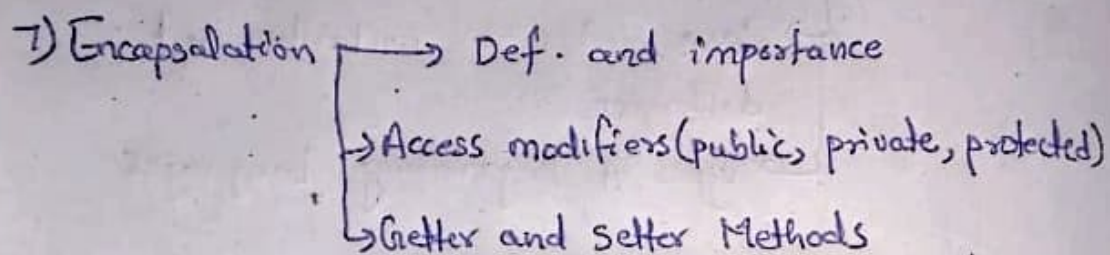 7) Encapsalation → Def. and importance
→ Access modifiers (public, private, protected)
→ Getter and setter Methods